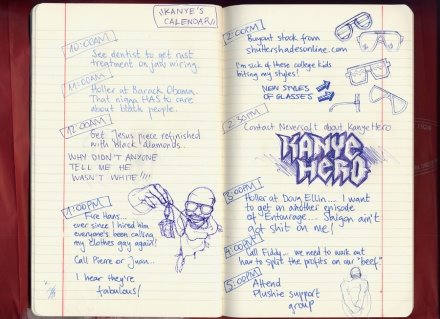 KANYE'S
CALENDAR!!
10:00AM
See dentist to get rust
treatment on jaw wiring.
11:00AM
Holler at Barack Obama.
That nigga HAS to care
about black people.
12:00AM
Get Jesus piece refinished
with black diamonds..
WHY DIDN'T ANYONE
TELL ME HE
WASN'T WHITE!!!!
1:00PM
Fire Hans...
ever since I hired him
everyone's been calling
my clothes gay again!
Call Pierre or Juan...
I hear they're
fabulous!
2:00PM
Buyout stock from
shuttershadesonline.com
I'm sick of these college kids
biting my styles!
NEW STYLES
OF GLASSES
2:30PM
Contact Neversoft about Kanye Hero
KANYE
HERO
3:00PM
Holler at Doug Ellin.... I want
to get on another episode
of "Entourage".... Saigon ain't
got shit on me!
4:00PM
Call Fiddy... we need to work out
how to split the profits on our "beef."
5:00PM
Attend
Plushie support
group